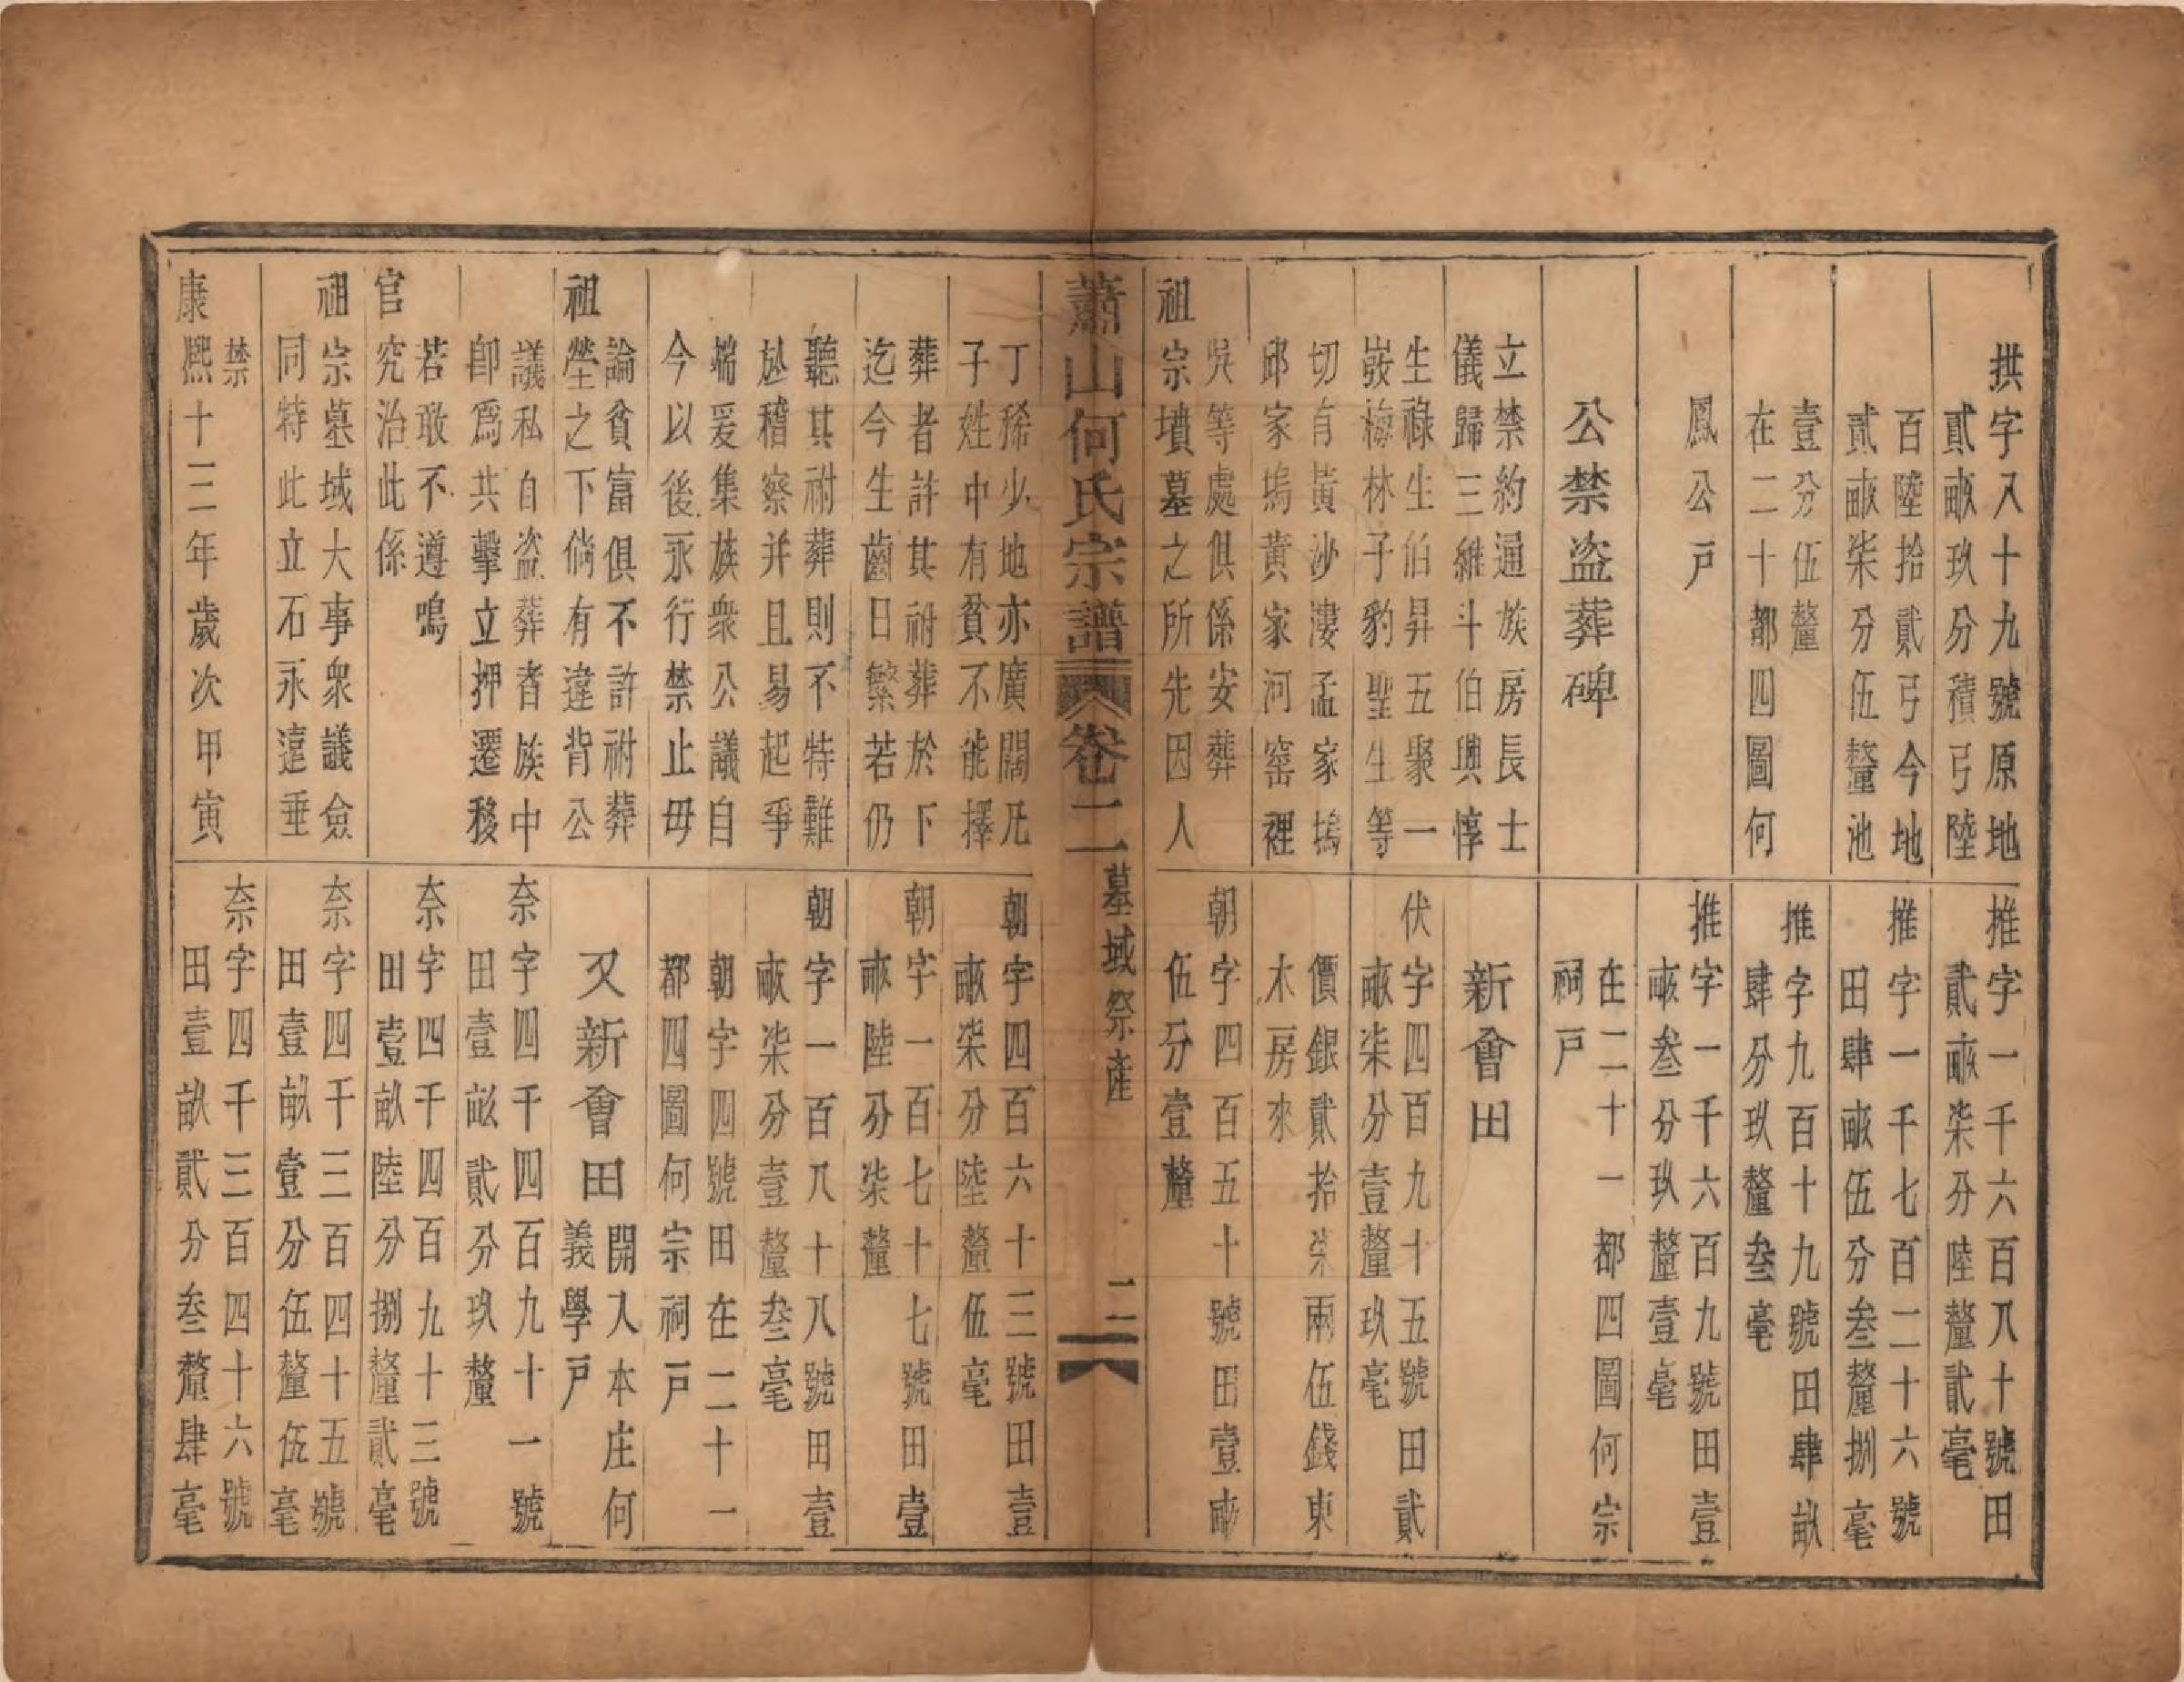 拱字八十九號原地
貳畝玖分積弓陸
百陸拾貳弓今地
貳畝柒分伍釐池
壹分伍釐
在二十都四圖何
鳳公戶
公禁盗葬碑
立禁約通族房長士
儀歸三維斗伯興惇
生祿生伯昇五聚一
嶷梅林子豹聖生等
切有黃沙漊孟家塢
邱家塢黃家河窰裡
吳等處俱係安葬
祖宗墳墓之所先因人
丁稀少地亦廣闊凡
子姓中有貧不能擇
葬者許其祔葬於下
迄今生齒日繁若仍
聽其祔葬則不特難
稽察并且易起爭
端爰集族衆公議自
今以後永行禁止毋
論貧富俱不許祔葬
祖塋之下倘有違背公
議私自盗葬者族中
卽爲共擊立押遷移
若敢不遵鳴
官究治此係
祖宗墓域大事衆議僉
同特此立石永遠垂
禁
康熙十三年歲次甲寅
推字一千六百八十號田
貳畝柒分陸釐貳毫
推字一千七百二十六號
田肆畝伍分叁釐捌毫
推字九百十九號田肆畝
肆分玖釐叁毫
推字一千六百九號田壹
畝叁分玖釐壹毫
在二十一都四圖何宗
祠戶
新會田
伏字四百九十五號田貳
畝柒分壹釐玖毫
價銀貳拾柒兩伍錢東
木房來
朝字四百五十號田壹畝
伍分壹釐
朝字四百六十三號田壹
畝柒分陸釐伍毫
朝字一百七十七號田壹
畝陸分柒釐
朝字一百八十八號田壹
畝柒分壹釐叁毫
朝字四號田在二十一
都四圖何宗祠戶
又新會田
開入本庄何
義學戶
奈字四千四百九十一號
田壹畝貳分玖釐
奈字四千四百九十三號
田壹畝陸分捌釐貳毫
奈字四千三百四十五號
田壹畝壹分伍釐伍毫
奈字四千三百四十六號
田壹畝貳分叁釐肆毫
蕭山何氏宗譜 卷二 墓域祭產 二